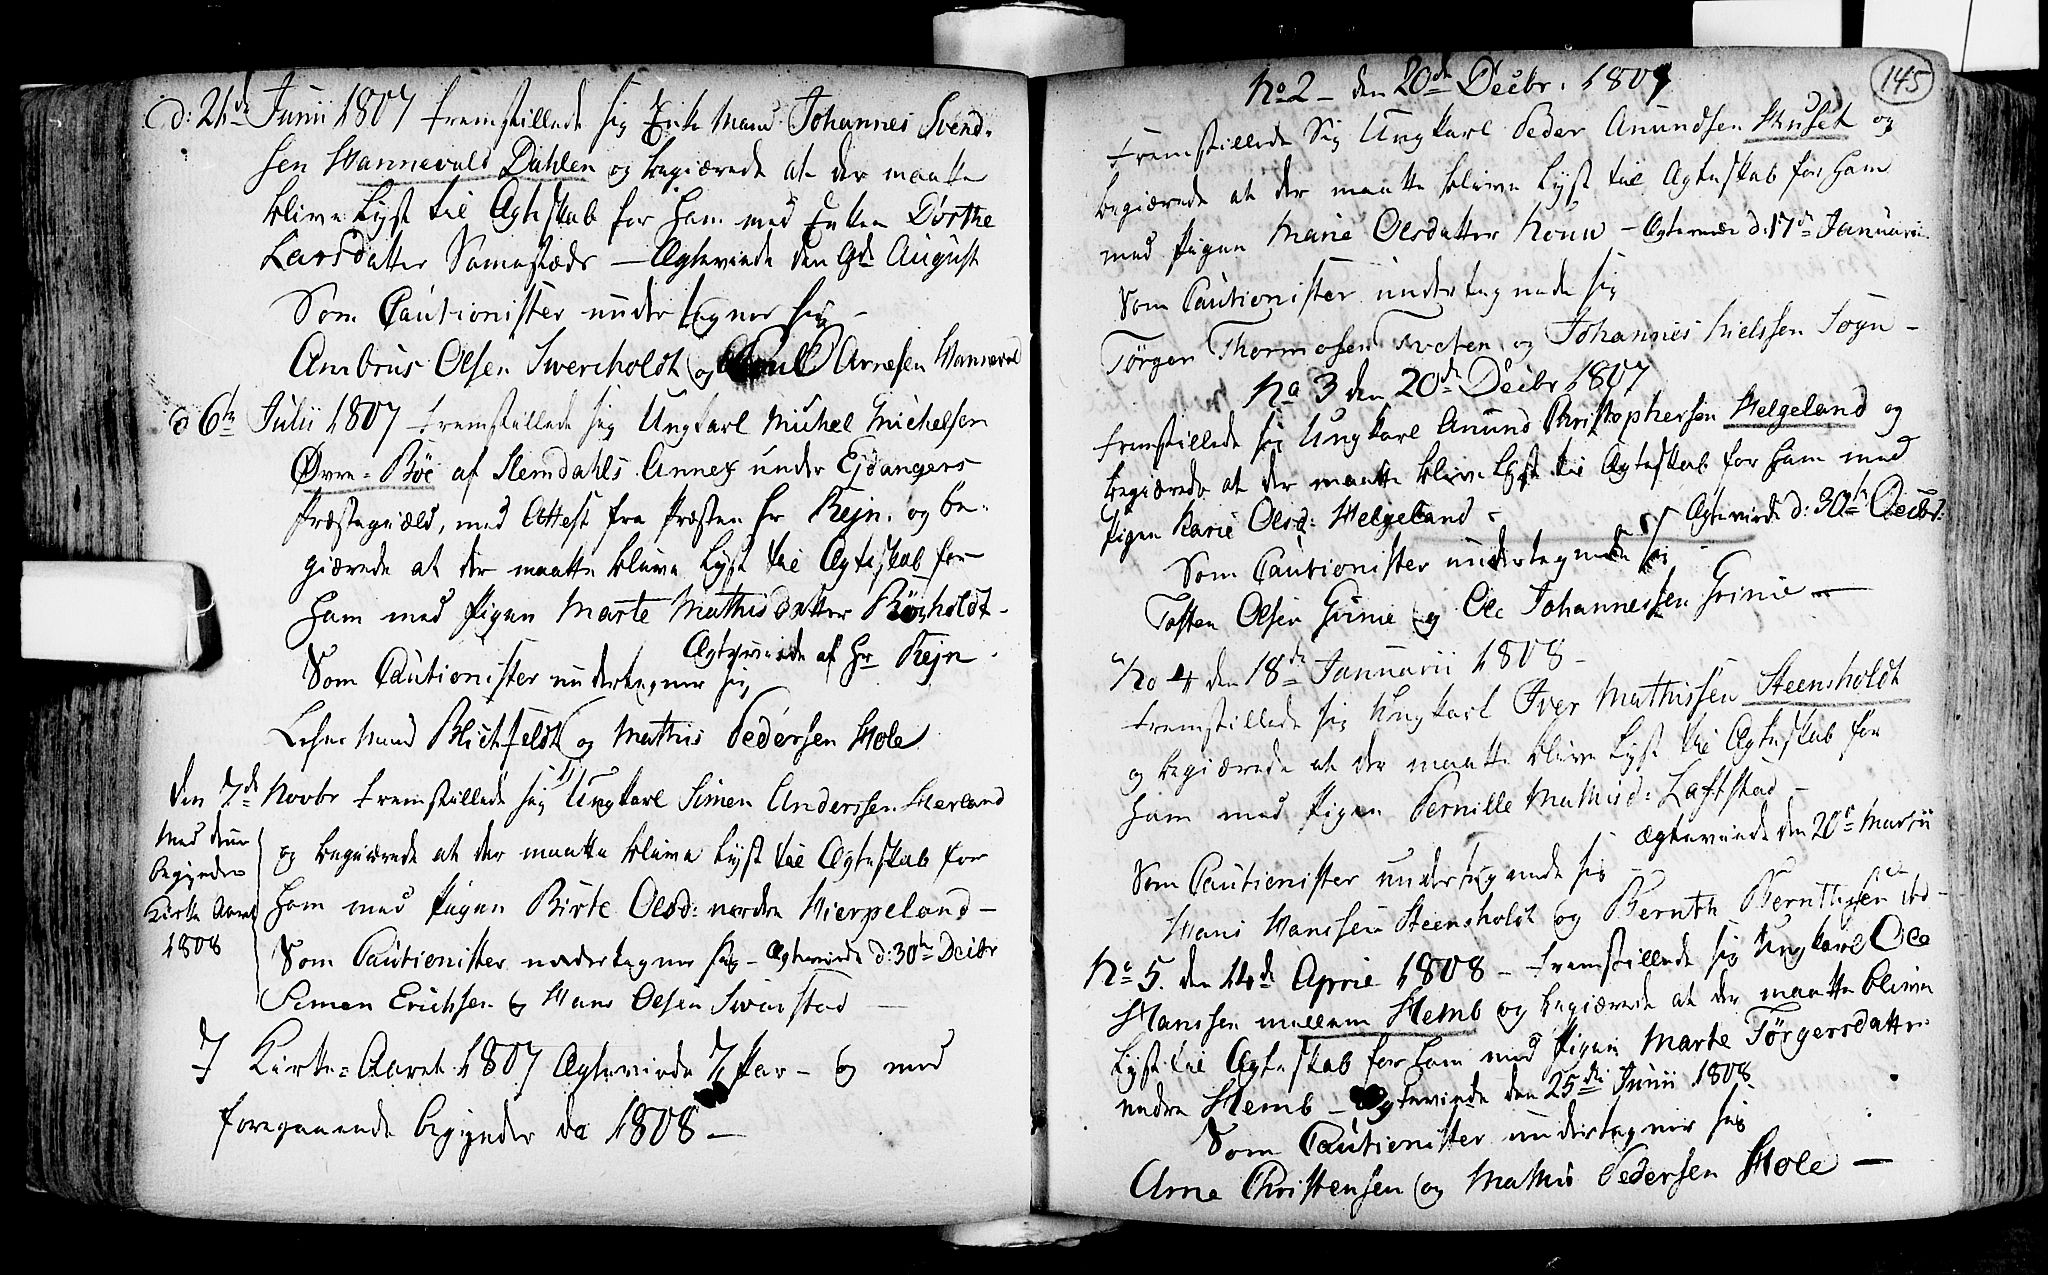 d: 21de Junii 1807 fremstillede sig Enke Mand Johannes Svend-
sen Hannevold Dahlen og begiærede at der maatte
blive lyst til Ægteskab for ham med Enken Dørthe
Larsdatter Samesteds — Ægteviede den 9de August
Som Cautionister undertegner sig —
Ambrus Olsen Svercholdt og Arnesen Hannevold
d 6te Julii 1807 fremstillede sig Ungkarl Michel Michelsen
Øvre-Böe af Slemdahls Annex under Ejdangers
Præstegiæld, med Attest fra Præsten Hr Rejn. og be-
giærede at der maatte blive lyst til Ægteskab for
ham med Pigen Marte Mathisdatter Rönholdt-
Ægteviede af Hr Rejn.
Som Cautionister undertegner sig
Lehnsmand Blichfeldt og Mathis Pedersen Hole
den 7de Novbr fremstillede sig Ungkarl Simen Anderssen Herland
og begiærede at der maatte blive lyst til Ægteskab for
ham med Pigen Birte Olsd: nordre Hierpeland —
Som Cautionister undertegner sig — Ægteviede d: 30te Decbr
Simen Erichsen og Hans Olsen Svarstad —
Med denne
begynder
Kirke Aaret
1808
I Kirke=Aaret 1807 Ægteviede 7 Par — og med
foregaaende begynder da 1808 —
145
No 2 — den 20de Decbr. 1807
fremstillede sig Ungkarl Peder Anundsen Huset og
begiærede at der maatte blive lyst til Ægteskab for ham
med Pigen Marie Olsdatter Houw — Ægteviede d: 17de Januarii
Som Cautionister undertegnede sig
Törger Thormosen Tveten og Johannes Nielssen Sogn —
No 3 den 20de Decbr 1807
fremstillede sig Ungkarl Anund Christophersen Helgeland og
begiærede at der maatte blive lyst til Ægteskab for ham med
Pigen Karie Olsd: Helgeland — Ægteviede d: 30te Decbr:
Som Cautionister undertegnede sig
Tosten Olsen Grinie og Ole Johannessen Grinie —
No 4 den 18de Januarii 1808 —
fremstillede sig Ungkarl Iver Mathissen Steensholdt
og begiærede at der maatte blive lyst til Ægteskab for
ham med Pigen Pernille Mathisd: Laftstad —
Ægteviede den 20de Martii
Som Cautionister undertegnede sig
Hans Hanssen Steensholdt og Bernth Bernthsen ibd —
No 5. den 14de April 1808 — fremstillede sig Ungkarl Ole
Hanssen mellem Hemb og begiærede at der maatte blive
lyst til Ægteskab for ham med Pigen Marte Törgersdatter
nedre Hemb — Ægteviede den 25de Junii 1808
Som Cautionister undertegner sig
Arne Christensen og Mathis Pedersen Hole —